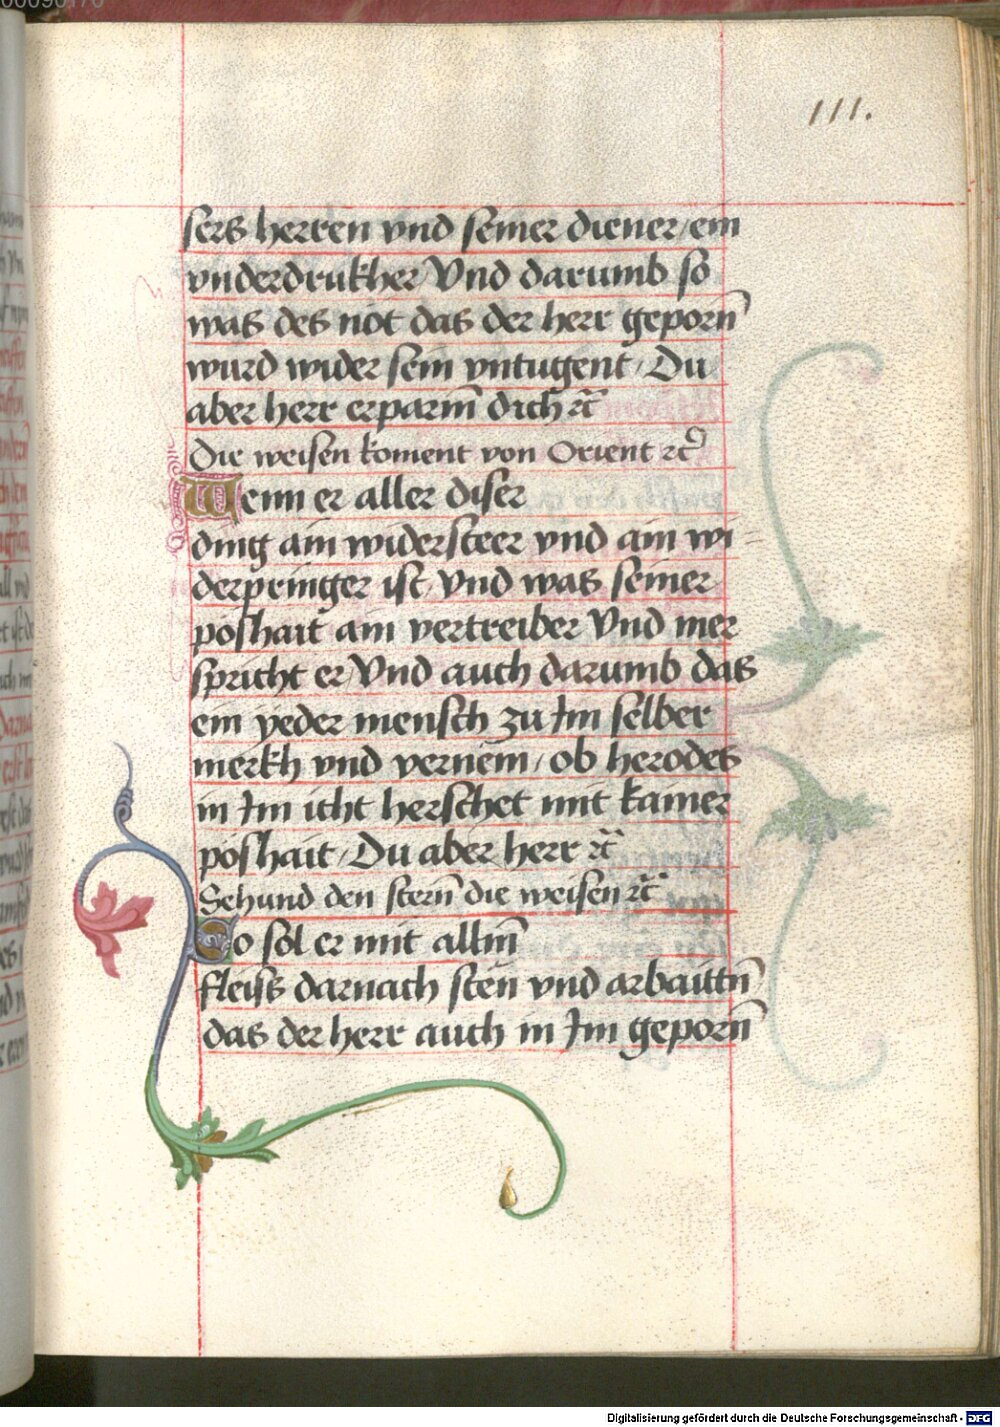 111.
sers herren vnd seiner diener / ein
vnderdrukher / Vnd darumb so
was des not das der herr geporn̄
wurd wider sein vntugent / Du
aber herr erparm̄ dich ꝛc̄
Die weisen koment von Orient ꝛc̄
Wenn er aller diser
ding ain widersteer vnd ain wi-
derpringer ist / Vnd was seiner
poshait ain vertreiber Vnd mer
spricht er / Vnd auch darumb das
ein yeder mensch zu Im selber
merkh vnd vernem / ob herodes
in Im icht herschet mit kainer
poshait / Du aber herr ꝛc̄
Sehund den stern̄ die weisen ꝛc̄
So sol er mit allm̄
fleiss darnach sten vnd arbaittn̄
das der herr auch in Im geporn̄
Digitalisierung gefördert durch die Deutsche Forschungsgemeinschaft - DFG